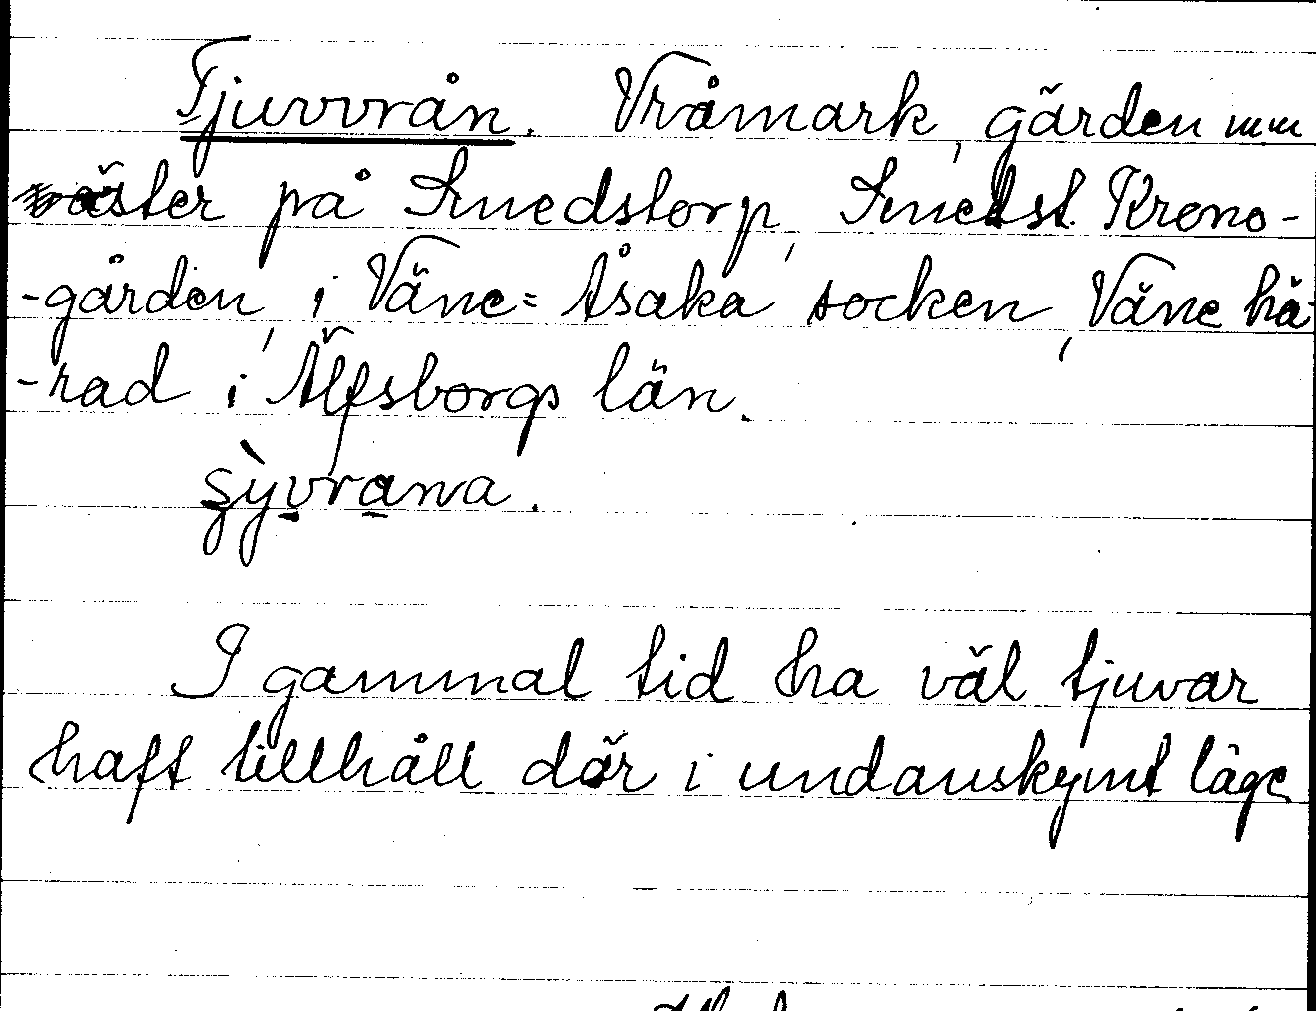 Tjuvvrån. Vråmark, gärden m m
väster på Smedstorp, Smedst. Krono-
-gården, i Väne=Åsaka socken, Väne hä
-rad i Älfsborgs län.
I gammal tid ha väl tjuvar
haft tillhåll där i undanskymt läge